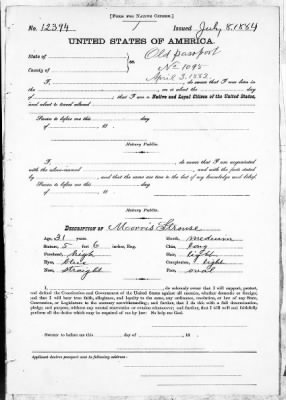 [FORM FOR NATIVE CITIZEN.]
No. 12394 Issued July 8. 1884
UNITED STATES OF AMERICA.
State of Old passport
ss.
County of No 1095
April 3. 1882
I, do swear that I was born in
the on or about the day
of ; that I am a Native and Loyal Citizen of the United States,
and about to travel abroad
Sworn to before me this day
of , 18 .
Notary Public.
I, , do swear that I am acquainted
with the above-named and with the facts stated
by and that the same are true to the best of my knowledge and belief.
Sworn to before me this day
of , 18 .
Notary Public.
DESCRIPTION OF Morris Strouse
Age, 31 years. Mouth, medium
Stature, 5 feet 6 inches, Eng. Chin, long
Forehead, high Hair, light
Eyes, blue Complexion, light
Nose, straight Face, oval
I, , do solemnly swear that I will support, protect,
and defend the Constitution and Government of the United States against all enemies, whether domestic or foreign;
and that I will bear true faith, allegiance, and loyalty to the same, any ordinance, resolution, or law of any State,
Convention, or Legislature to the contrary notwithstanding; and further, that I do this with a full determination,
pledge, and purpose, without any mental reservation or evasion whatsoever; and further, that I will well and faithfully
perform all the duties which may be required of me by law: So help me God.
Sworn to before me this day of , 18 .
Applicant desires passport sent to following address: